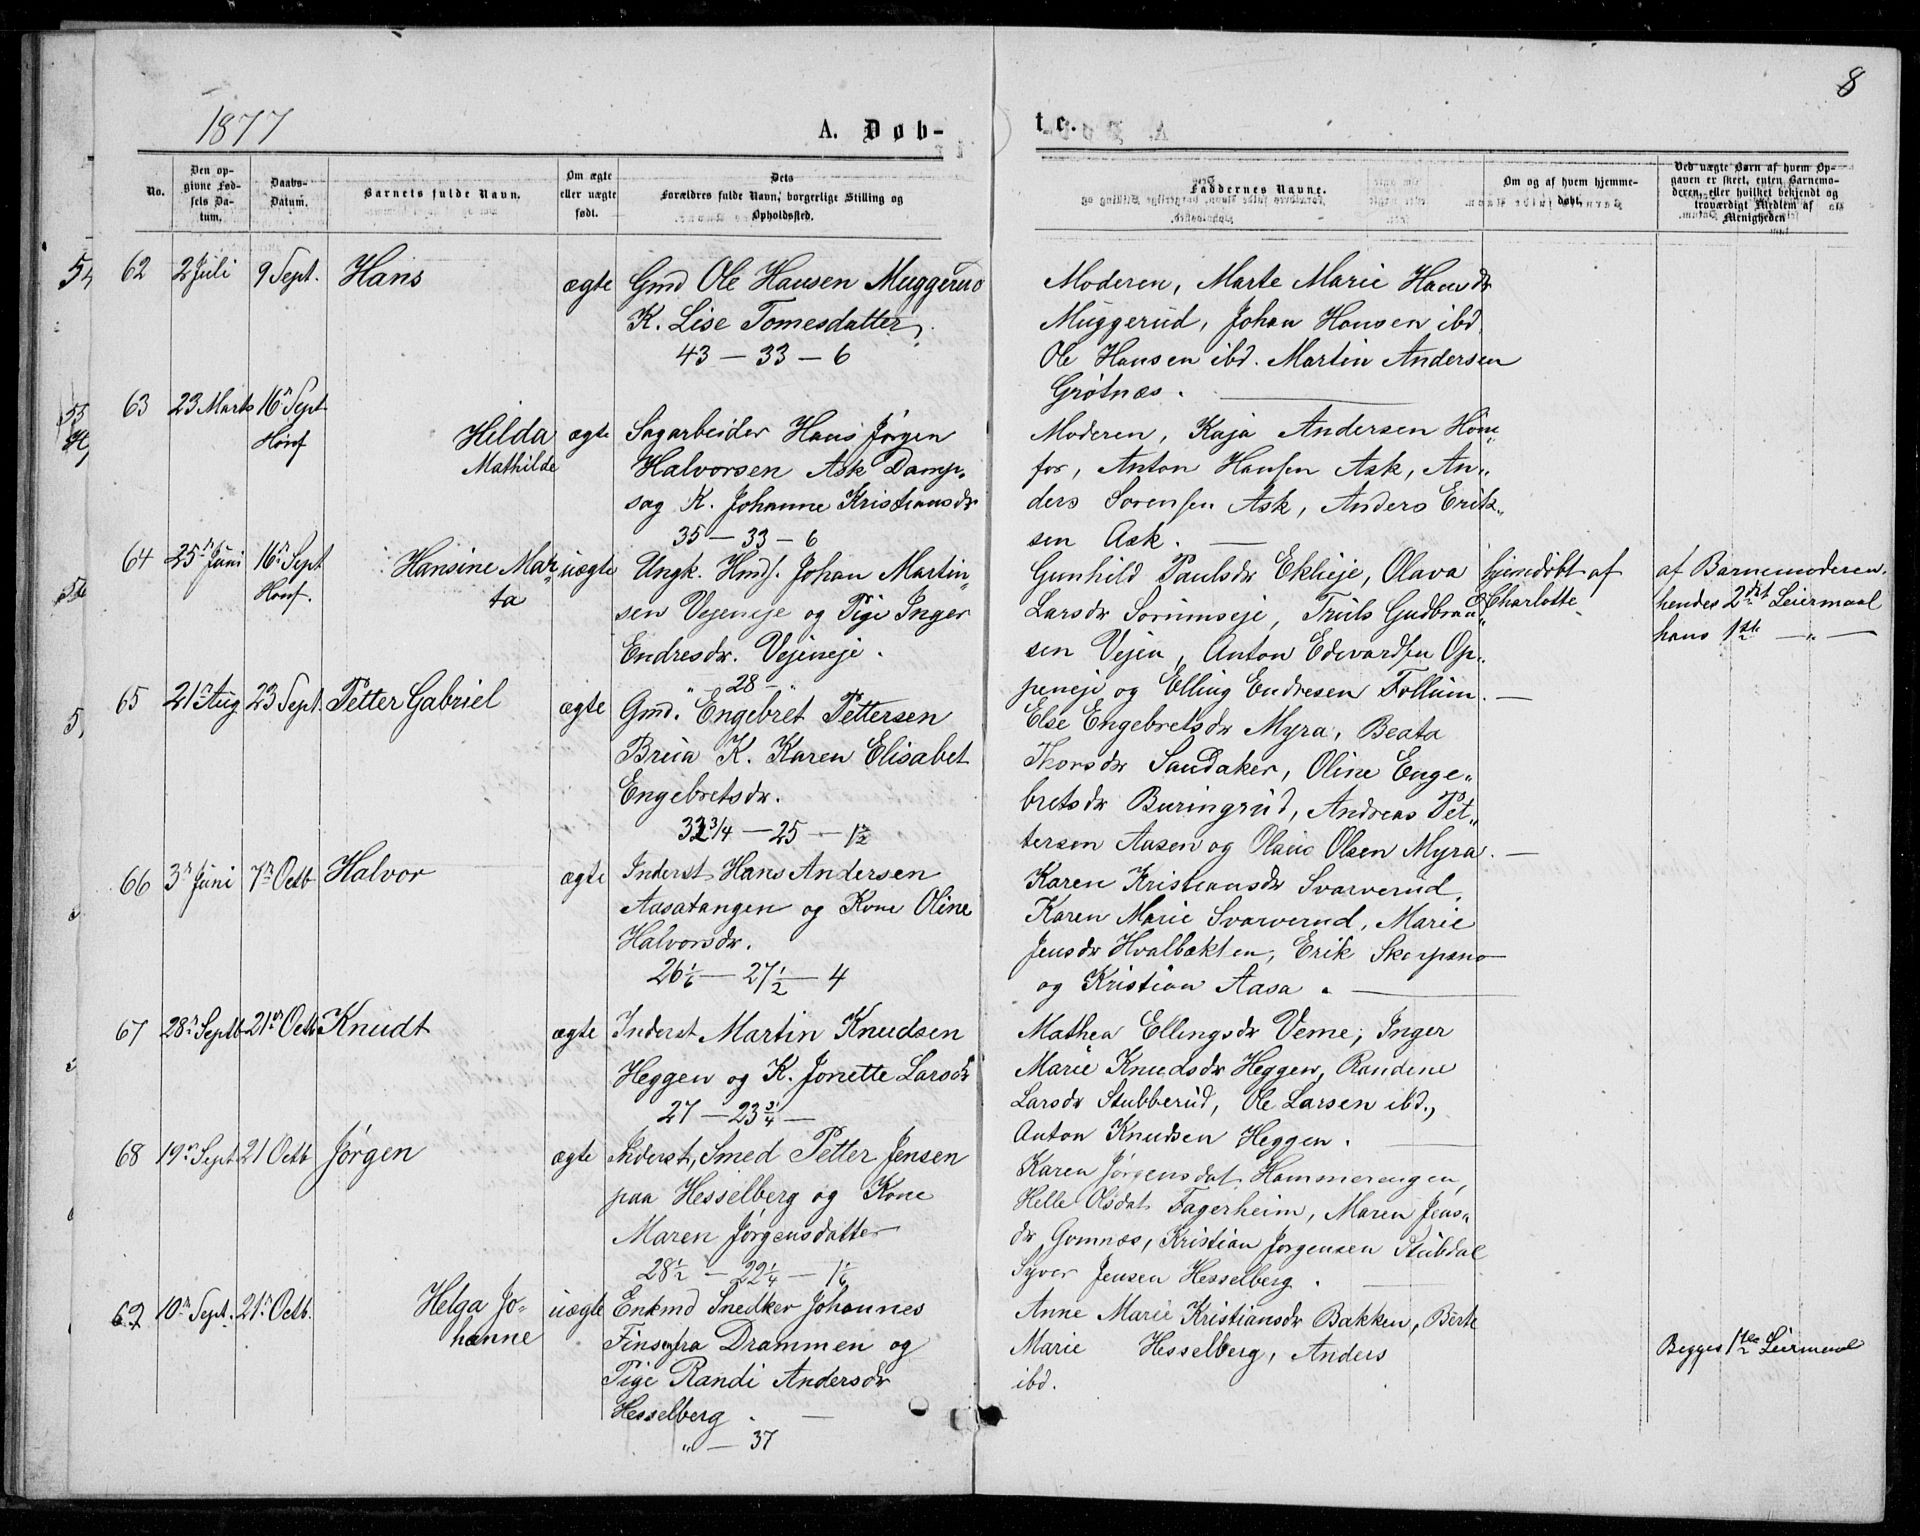 1877
8
A. Døb-
te.
No.
Den op-
givne Fød-
sels Da-
tum.
Daabs-
Datum.
Barnets fulde Navn.
Om ægte
eller uægte
født.
Dets
Forældres fulde Navn, borgerlige Stilling og
Opholdssted.
Faddernes Navne.
Om og af hvem hjemme-
døbt.
Ved uægte Børn af hvem Op-
gaven er skeet, enten Barnemo-
deren, eller hvilket bekjendt og
troværdigt Medlem af
Menigheden
62 2 Juli 9 Sept. Hans ægte Gmd Ole Hansen Muggerud
K. Lise Tomesdatter.
43 — 33 — 6
Moderen, Marte Marie Hansdr
Muggerud, Johan Hansen ibd
Ole Hansen ibd. Martin Andersen
Grøtnæs.
63 23 Marts 16 Sept Hønf Hilda
Mathilde
ægte Sagarbeider Hans Jørgen
Halvorsen Ask Damp-
sag K. Johanne Kristiansdr
35 — 33 — 6
Moderen, Kaja Andersen Høne-
fos, Anton Hansen Ask, An-
ders Sorensen Ask, Anders Erik-
sen Ask.
64 25 Juni 16 Sept Honf. Hansine Mar-
ta
uægte Ungk. Hmdf. Johan Martin-
sen Vejeneje og Pige Inger
Endresdr. Vejeneje.
" 28 "
Gunhild Paulsdr Eklieje, Olava
Larsdr Sorumseje, Truls Gudbrand-
sen Vejen, Anton Edevardsen Op-
peneje og Elling Endresen Follum.
hjemdøbt af
Charlotte
af Barnemoderen.
hendes 2det Leiermaal
hans 1ste — " —
65 21 Aug 23 Sept. Petter Gabriel ægte Gmd. Engebret Pettersen
Breia K. Karen Elisabet
Engebretsdr.
32 3/4 — 25 — 1 1/2
Else Engebretsdr Myra, Beata
Thorsdr Sandaker, Oline Enge-
bretsdr Buringrud, Andreas Pet-
tersen Aasen og Olaus Olsen Myra.
66 3 Juni 7 Octb Halvor ægte Inderst Hans Andersen
Aasatangen og Kone Oline
Halvorsdr.
26 1/6 — 27 1/2 — 4
Karen Kristiansdr Svarverud,
Karen Marie Svarverud, Marie
Jensdr Hvalbækken, Erik
og Kristian Aasa.
67 28 Septb 21 Octb Knudt ægte Inderst Martin Knudsen
Heggen og K. Jonette Larsdr
27 — 23 3/4 —
Mathea Ellingsdr Veme, Inger
Marie Knudsdr Heggen, Randine
Larsdr Stubberud, Ole Larsen ibd.,
Anton Knudsen Heggen.
68 19 Sept 21 Octb Jørgen ægte Inderst, Smed Petter Jensen
paa Hesselberg og Kone
Maren Jørgensdatter
28 1/2 — 22 1/4 — 1 1/6
Karen Jørgensdat. Hammerengen,
Helle Olsdat Fagerheim, Maren Jens-
dr, Gomnæs, Kristian Jørgensen Stubdal
Syver Jensen Hesselberg.
69 10 Sept. 21 Octb. Helga Jo-
hanne
uægte Enkmd Snedker Johannes
Finsen fra Drammen og
Pige Randi Andersdr
Hesselberg.
" — 37
Anne Marie Kristiansdr Bakken, Berte
Marie Hesselberg, Anders
ibd.
Begges 1ste Leiermaal